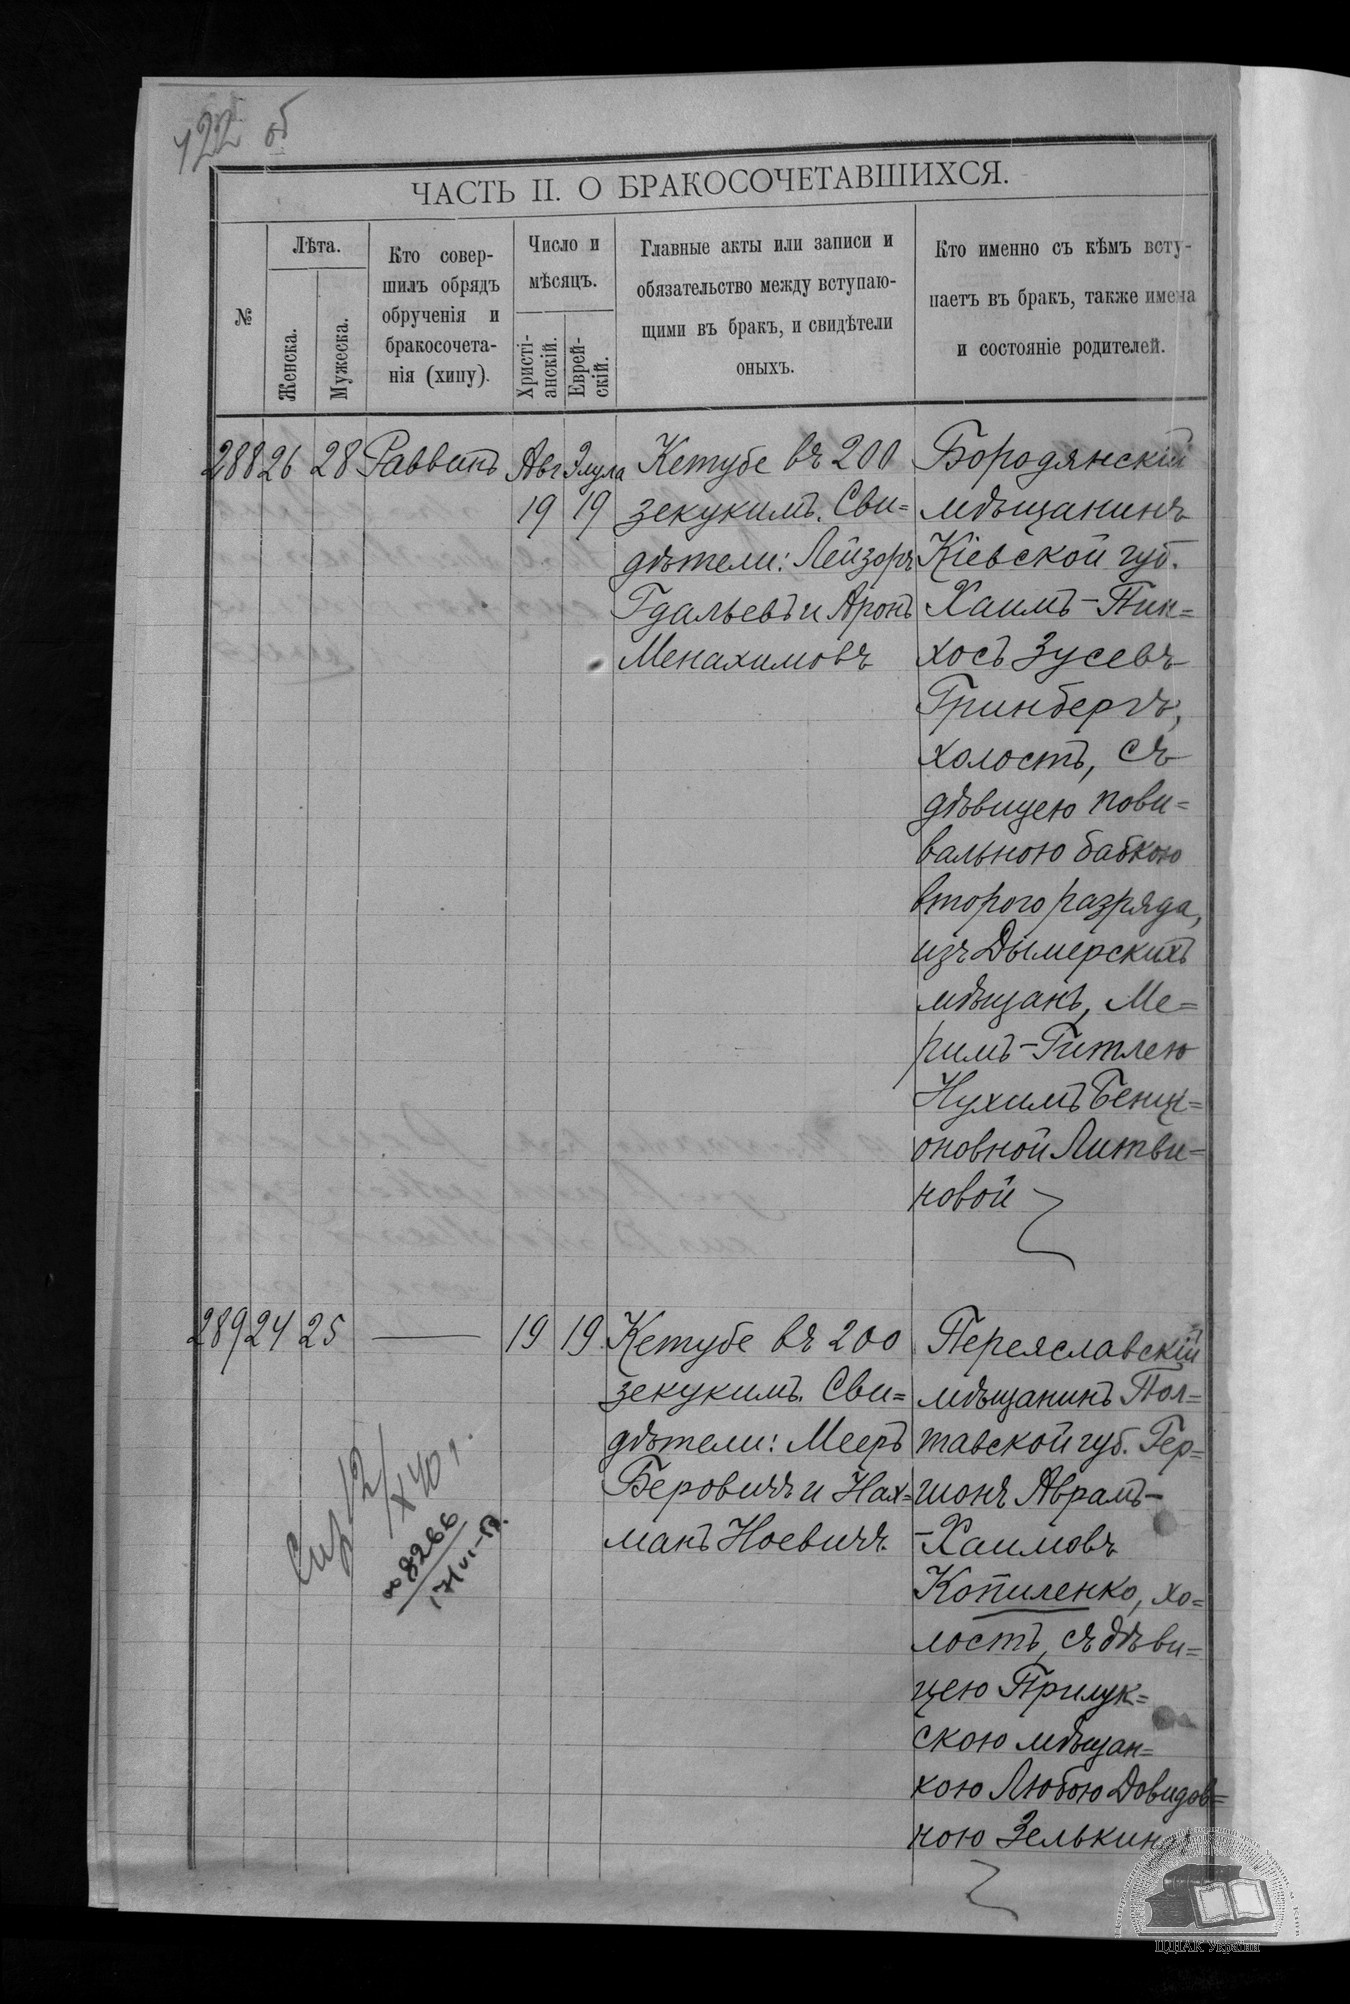 122 об
ЧАСТЬ II. О БРАКОСОЧЕТАВШИХСЯ.
№
Лѣта.
Женска.
Мужеска.
Кто совер-
шилъ обрядъ
обрученія и
бракосочета-
нія (хипу).
Число и
мѣсяцъ.
Христі-
анскій.
Еврей-
скій.
Главные акты или записи и
обязательство между вступаю-
щими въ бракъ, и свидѣтели
оныхъ.
Кто именно съ кѣмъ всту-
паетъ въ бракъ, также имена
и состояніе родителей.
288 26 28 Раввинъ Авг Элула
19 19
Кетубе въ 200
зекукимъ. Сви=
дѣтели: Лейзоръ
Гдальевъ и Аронъ
Менахимовъ
Бородянскій
мѣщанинъ
Кіевской губ.
Хаимъ-Пин=
хосъ Зусевъ
Гринбергъ,
холостъ, съ
дѣвицею пови=
вальною бабкою
второго разряда,
изъ Дымерскихъ
мѣщанъ, Ме=
римъ-Гитлею
Нухимъ Бенц=
оновной Литви=
новой
289 24 25 — 19 19
Кетубе въ 200
зекукимъ. Сви=
дѣтели: Мееръ
Беровичъ и Нах=
манъ Ноевичъ
Переяславскій
мѣщанинъ Пол=
тавской губ. Гер=
шонъ Аврамъ-
-Хаимовъ
Копиленко, хо=
лостъ, съ дѣви=
цею Прилук=
скою мѣщан=
кою Любою Довидов=
ною Зелькиной
12/X 40 г.
8266
ЦДІАК України